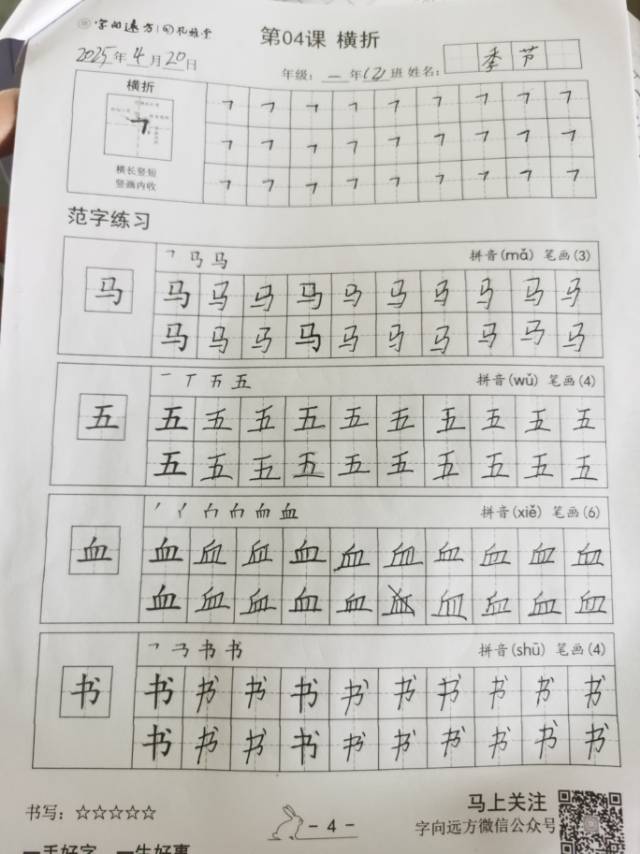 字向远方 孔雅堂
第04课 横折
2025年4月20日
年级：一年(2)班 姓名：季节
横折
横长竖短
竖画内收
㇕ ㇕ ㇕ ㇕ ㇕ ㇕ ㇕ ㇕ ㇕
㇕ ㇕ ㇕ ㇕ ㇕ ㇕ ㇕ ㇕ ㇕
㇕ ㇕ ㇕ ㇕ ㇕ ㇕ ㇕ ㇕ ㇕
范字练习
拼音(mǎ) 笔画(3)
马 马 马 马 马 马 马 马 马 马 马
马 马 马 马 马 马 马 马 马 马
拼音(wǔ) 笔画(4)
五 五 五 五 五 五 五 五 五 五 五
五 五 五 五 五 五 五 五 五 五
拼音(xiě) 笔画(6)
血 血 血 血 血 血 血 血 血 血 血
血 血 血 血 血 血 血 血 血
拼音(shū) 笔画(4)
书 书 书 书 书 书 书 书 书 书 书
书 书 书 书 书 书 书 书 书 书
书写：☆☆☆☆☆
- 4 -
马上关注
字向远方微信公众号
一手好字 一生好事